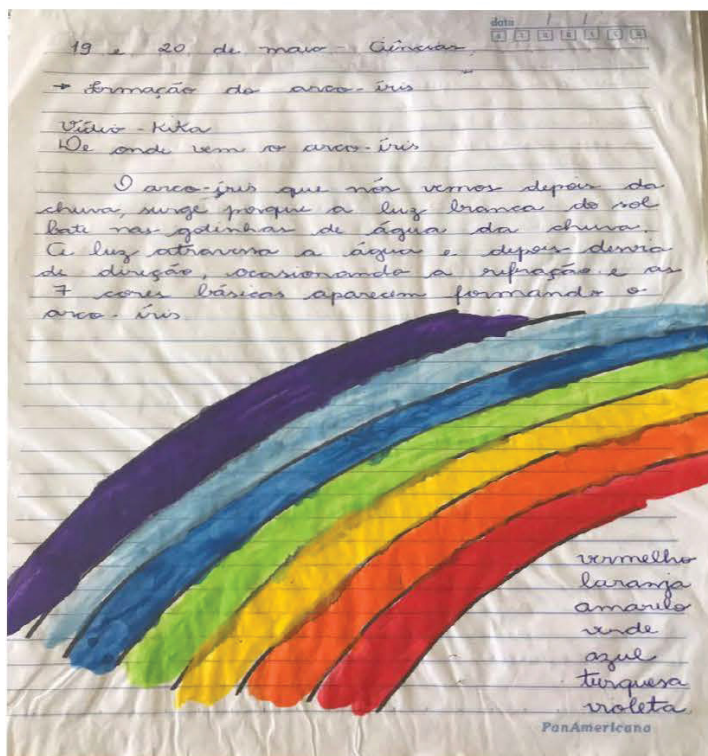 data / /
19 e 20 de maio - Ciências
→ formação do arco-íris
Vídeo - Kika
De onde vem o arco-íris
O arco-íris que nós vemos depois da
chuva, surge porque a luz branca do sol
bate nas gotinhas de água da chuva.
A luz atravessa a água e depois desvia
de direção, ocasionando a refração e as
7 cores básicas aparecem formando o
arco-íris
vermelho
laranja
amarelo
verde
azul
turquesa
violeta
PanAmericana